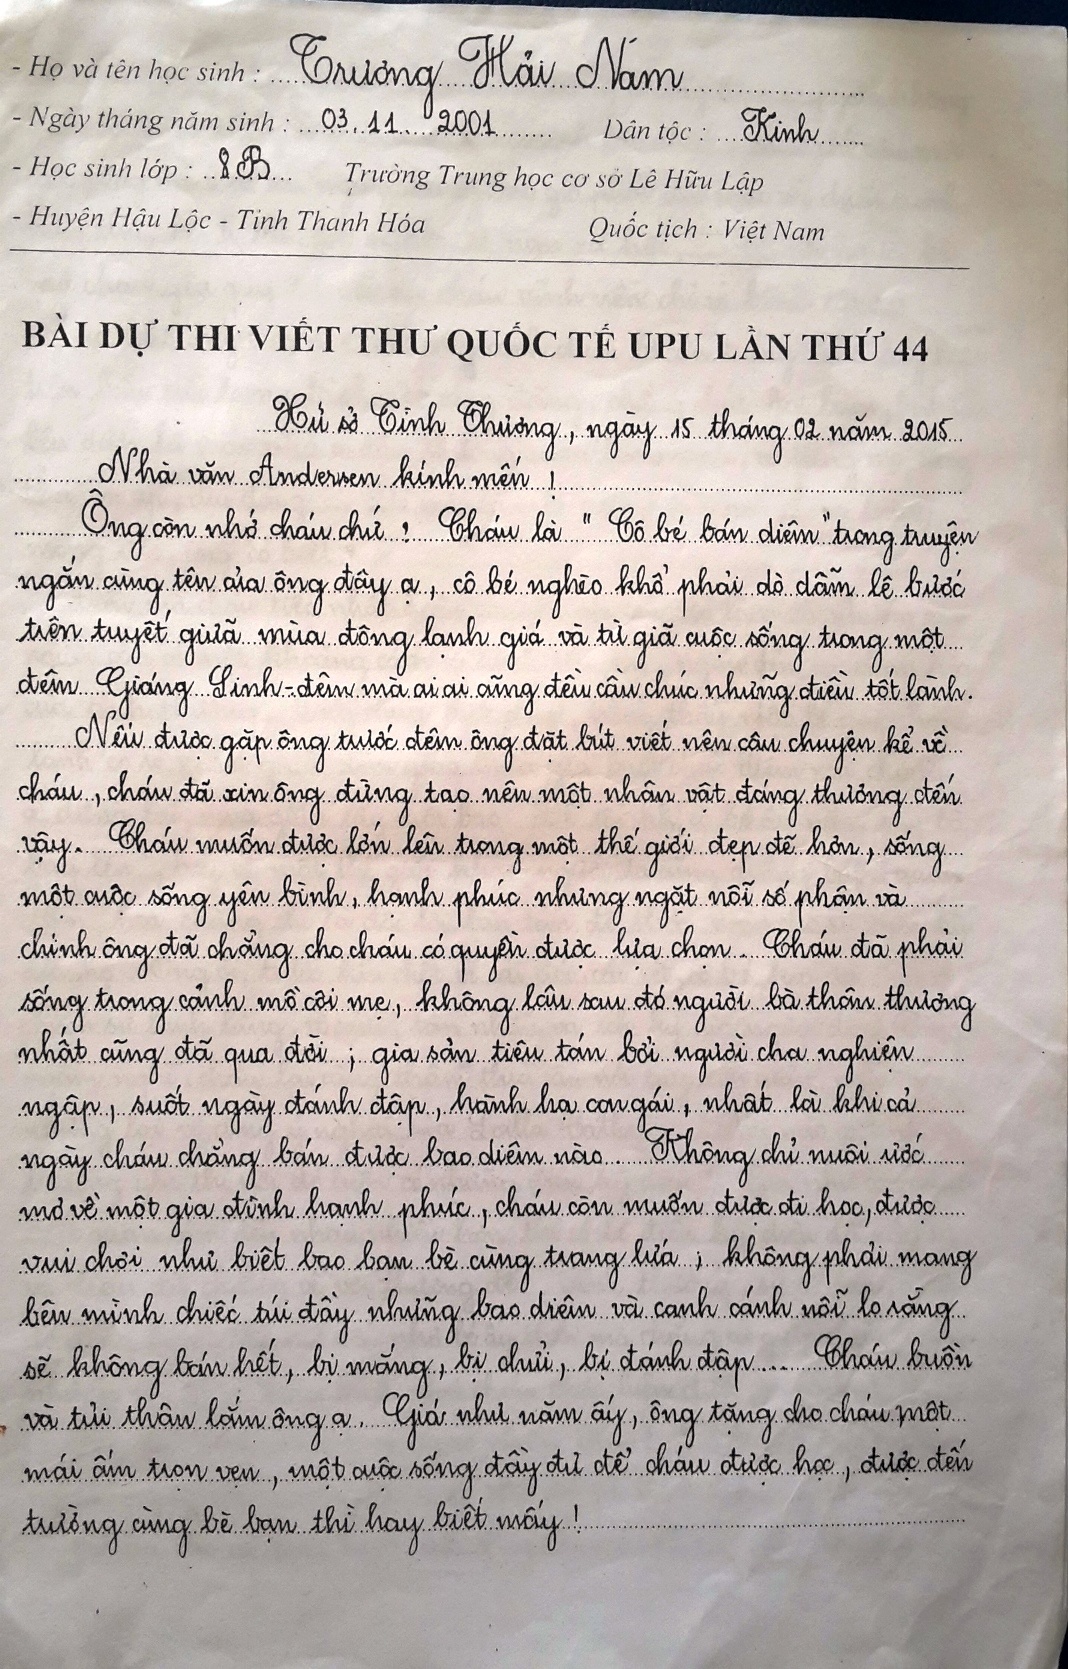 - Họ và tên học sinh : Trương Hải Nam
- Ngày tháng năm sinh : 03.11.2001 Dân tộc : Kinh
- Học sinh lớp : 8B Trường Trung học cơ sở Lê Hữu Lập
- Huyện Hậu Lộc - Tỉnh Thanh Hóa Quốc tịch : Việt Nam
BÀI DỰ THI VIẾT THƯ QUỐC TẾ UPU LẦN THỨ 44
Xứ sở Tình Thương, ngày 15 tháng 02 năm 2015
Nhà văn Andersen kính mến !
Ông còn nhớ cháu chứ ? Cháu là " Cô bé bán diêm" trong truyện
ngắn cùng tên của ông đây ạ, cô bé nghèo khổ phải dò dẫm lê bước
trên tuyết giữa mùa đông lạnh giá và từ giã cuộc sống trong một
đêm Giáng Sinh - đêm mà ai ai cũng đều cầu chúc những điều tốt lành.
Nếu được gặp ông trước đêm ông đặt bút viết nên câu chuyện kể về
cháu, cháu đã xin ông đừng tạo nên một nhân vật đáng thương đến
vậy. Cháu muốn được lớn lên trong một thế giới đẹp đẽ hơn, sống
một cuộc sống yên bình, hạnh phúc nhưng ngặt nỗi số phận và
chính ông đã chẳng cho cháu có quyền được lựa chọn. Cháu đã phải
sống trong cảnh mồ côi mẹ, không lâu sau đó người bà thân thương
nhất cũng đã qua đời ; gia sản tiêu tán bởi người cha nghiện
ngập, suốt ngày đánh đập, hành hạ con gái, nhất là khi cả
ngày cháu chẳng bán được bao diêm nào. Không chỉ nuôi ước
mơ về một gia đình hạnh phúc, cháu còn muốn được đi học, được
vui chơi như biết bao bạn bè cùng trang lứa ; không phải mang
bên mình chiếc túi đầy những bao diêm và canh cánh nỗi lo rằng
sẽ không bán hết, bị mắng, bị chửi, bị đánh đập... Cháu buồn
và tủi thân lắm ông ạ. Giá như năm ấy, ông tặng cho cháu một
mái ấm trọn vẹn, một cuộc sống đầy đủ để cháu được học, được đến
trường cùng bè bạn thì hay biết mấy !